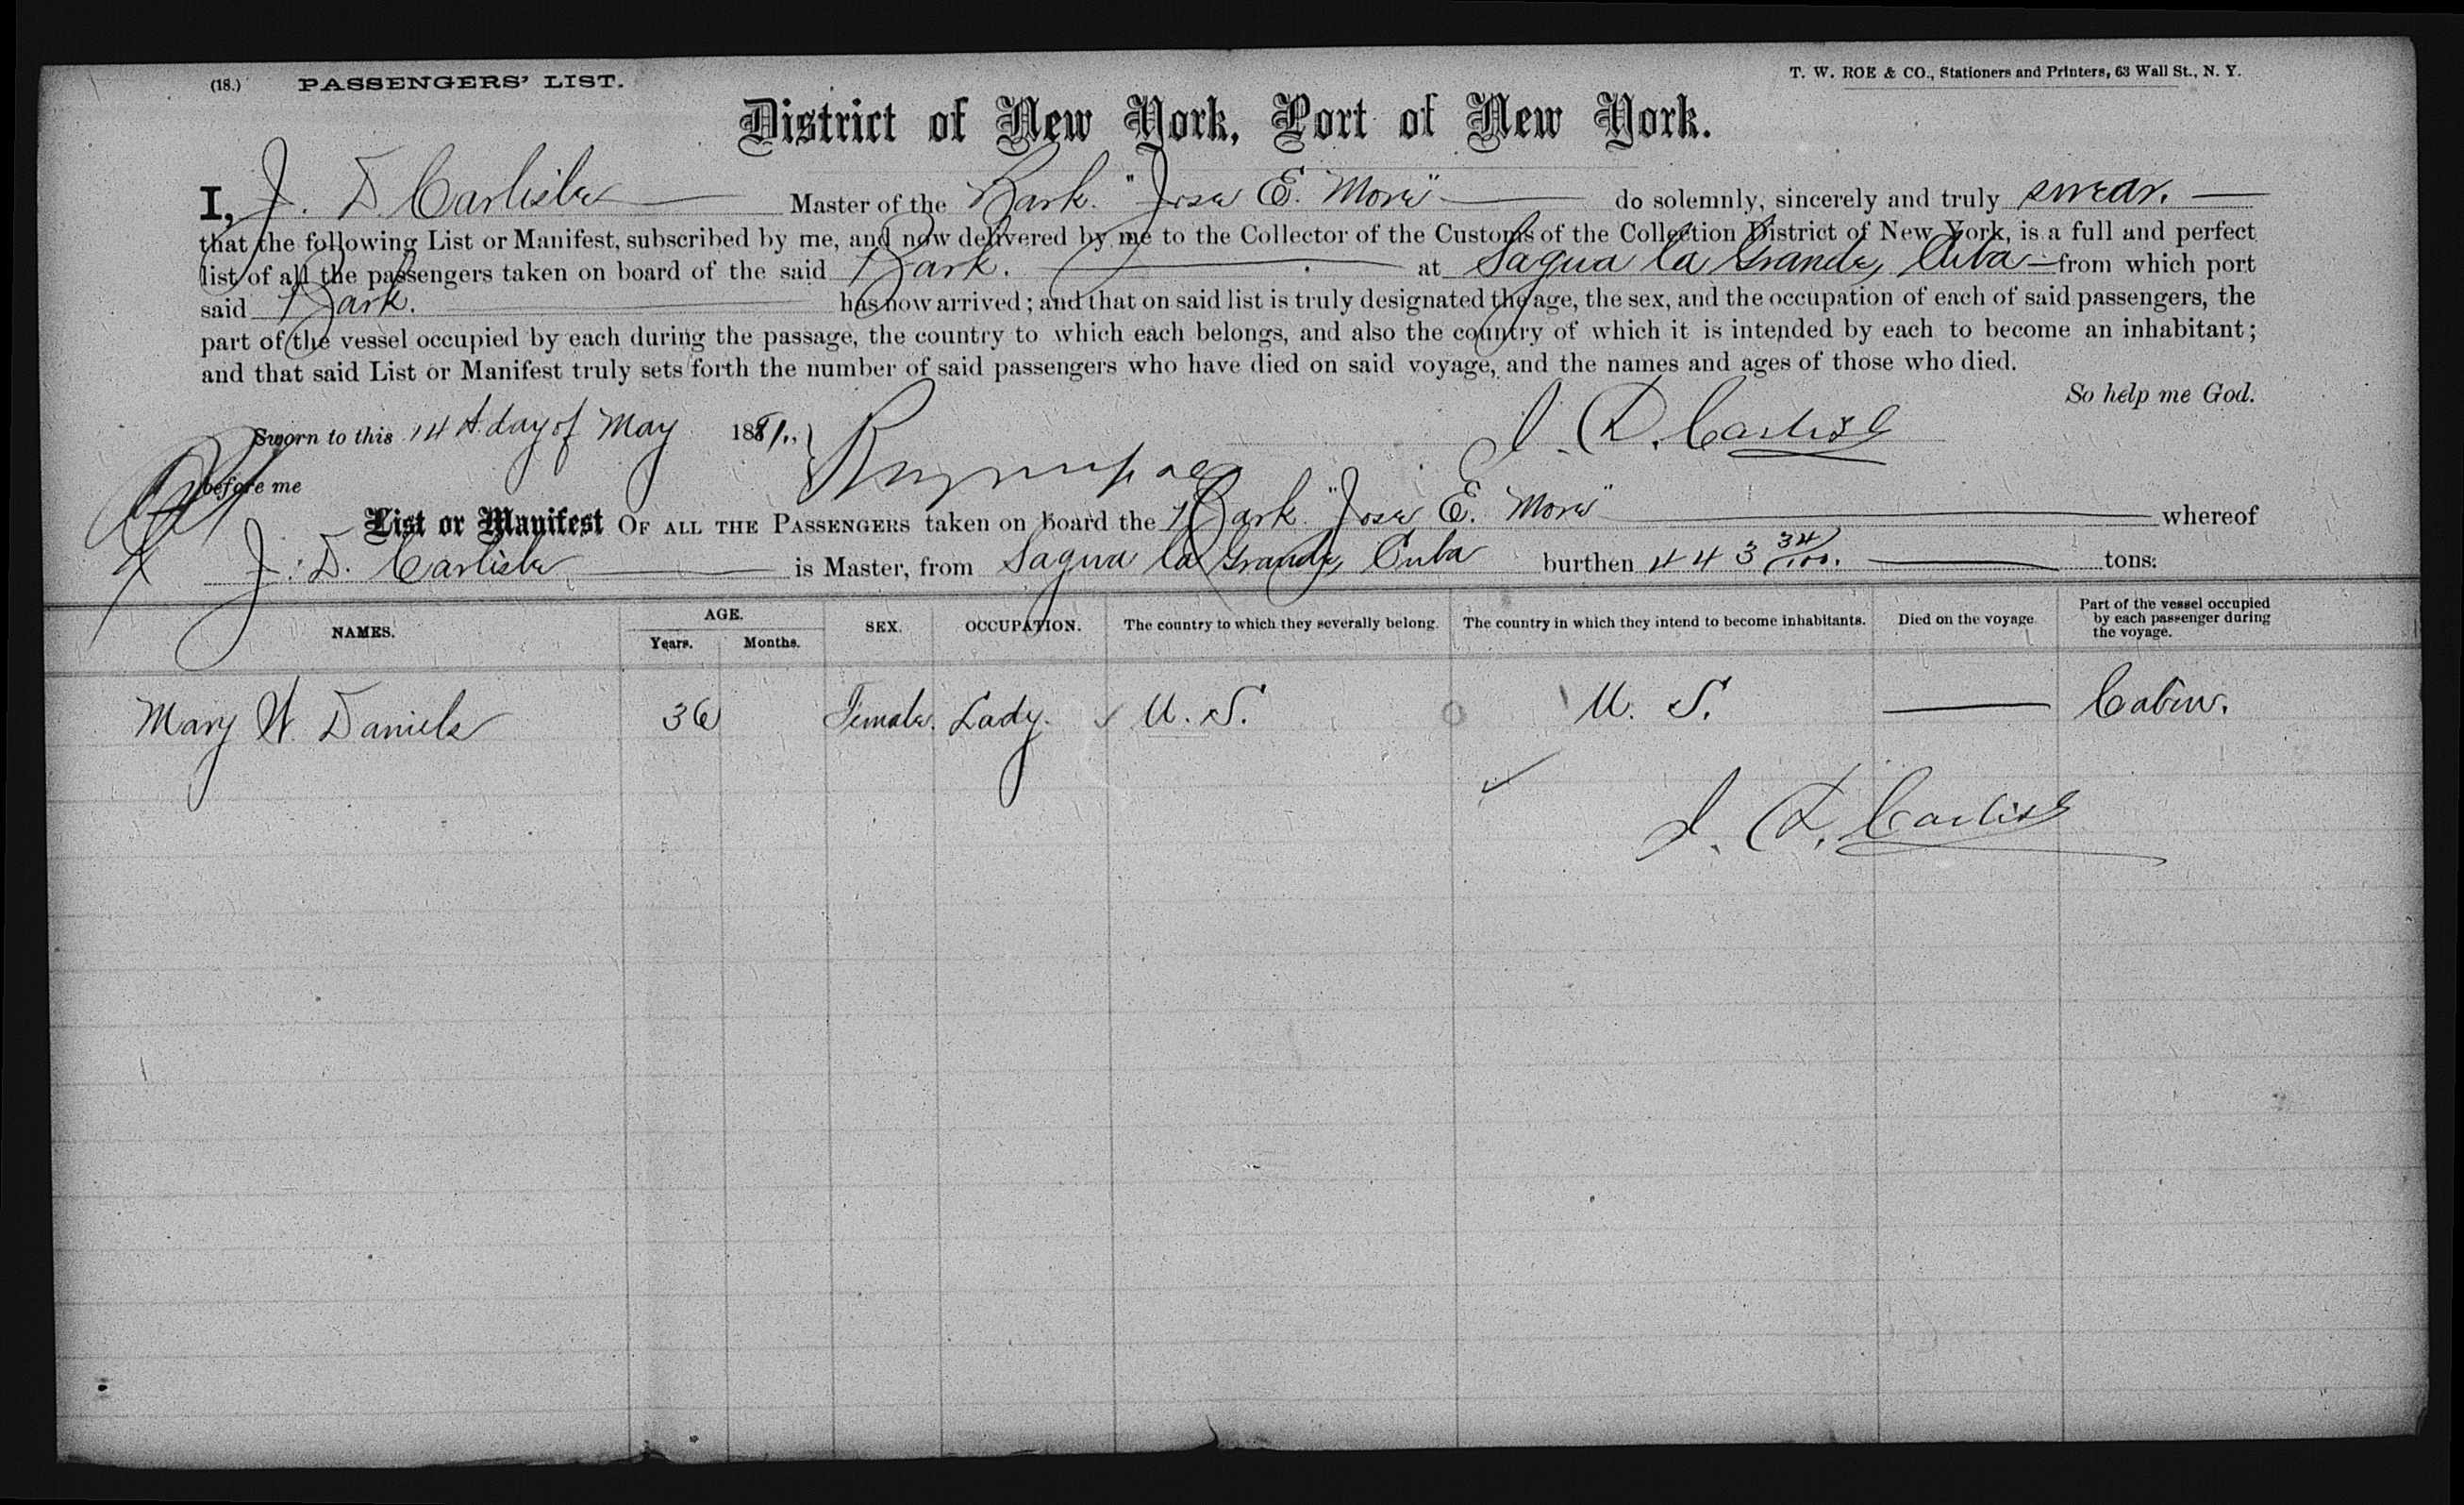 (18.) PASSENGERS' LIST. T. W. ROE & CO., Stationers and Printers, 63 Wall St., N. Y.
District of New York, Port of New York.
I, J. D. Carlisle Master of the Bark. "Jose E. More" do solemnly, sincerely and truly swear.
that the following List or Manifest, subscribed by me, and now delivered by me to the Collector of the Customs of the Collection District of New York, is a full and perfect
list of all the passengers taken on board of the said Bark. at Sagua la Grande, Cuba from which port
said Bark. has now arrived; and that on said list is truly designated the age, the sex, and the occupation of each of said passengers, the
part of the vessel occupied by each during the passage, the country to which each belongs, and also the country of which it is intended by each to become an inhabitant;
and that said List or Manifest truly sets forth the number of said passengers who have died on said voyage, and the names and ages of those who died.
So help me God.
Sworn to this 14th day of May 1881., J. D. Carlisle
before me
List or Manifest OF ALL THE PASSENGERS taken on board the Bark "Jose E. More" whereof
J. D. Carlisle is Master, from Sagua la Grande, Cuba burthen 443 34/100. tons.
NAMES. AGE. Years. Months. SEX. OCCUPATION. The country to which they severally belong. The country in which they intend to become inhabitants. Died on the voyage Part of the vessel occupied by each passenger during the voyage.
Mary W. Daniels 36 Female. Lady. U. S. U. S. Cabin.
J. D. Carlisle